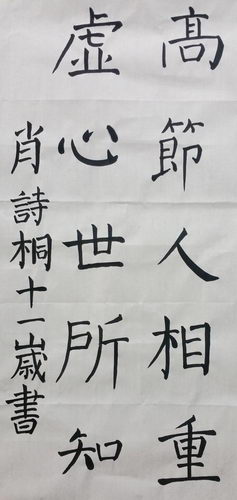 高節人相重
虛心世所知
肖詩桐十一歲書